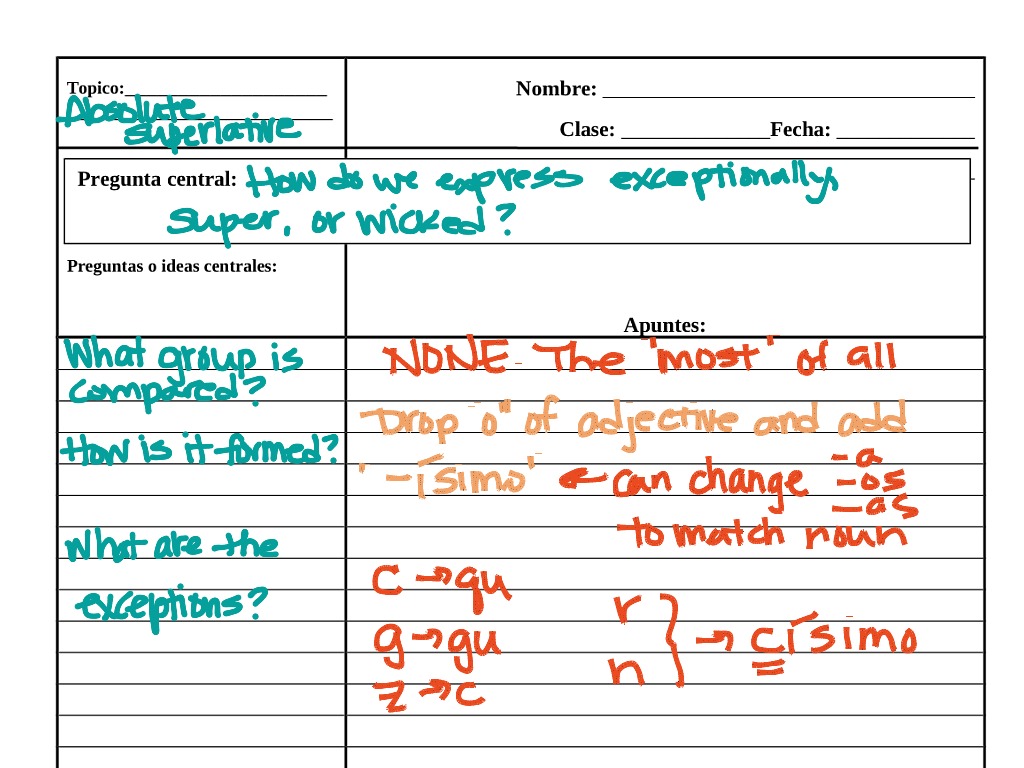 Topico:
Nombre:
Absolute
superlative
Clase: Fecha:
Pregunta central: How do we express exceptionally,
super, or wicked?
Preguntas o ideas centrales:
Apuntes:
What group is
compared?
NONE- The "most" of all
Drop "o" of adjective and add
How is it formed?
"-ísimo" ← can change -a
-os
-as
to match noun
What are the
exceptions?
c → qu
g → gu
z → c
r
n } → císimo